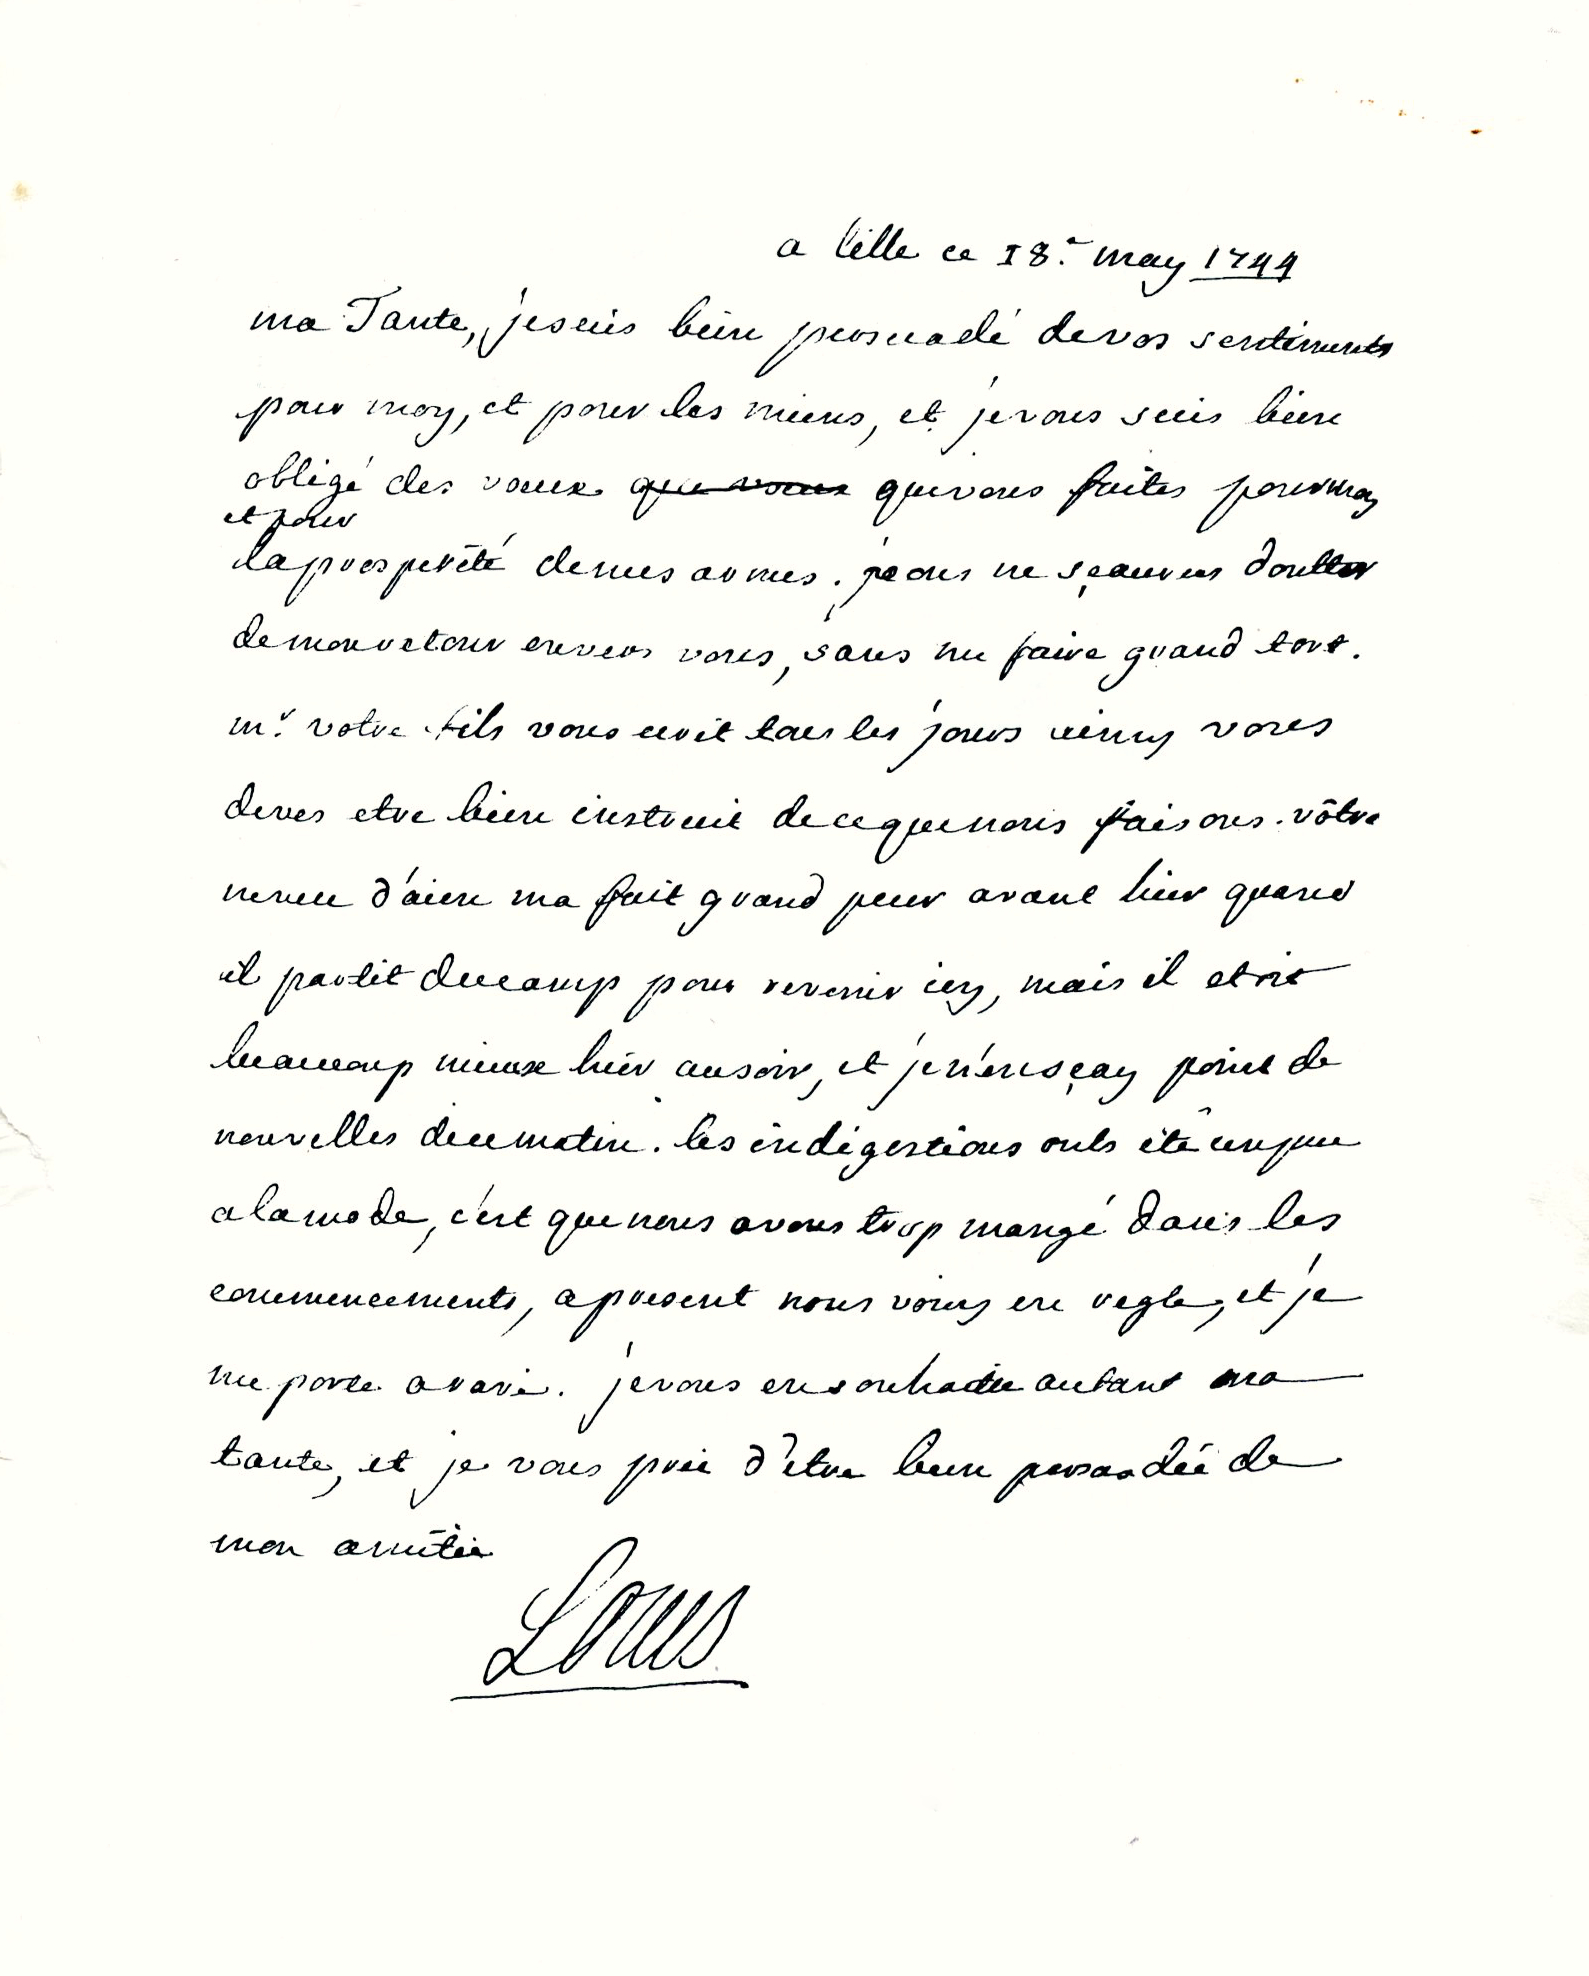 a lille ce 18.e may 1744
ma Tante, je suis bien persuadé de vos sentiments
pour moy, et pour les miens, et je vous suis bien
obligé des vœux que vous que vous faites pour moy
et pour
la prosperité de mes armes. je ne sçaures doutter
de mon retour envers vous, sans me faire grand tort.
mr. votre fils vous ecrit tous les jours ainsy vous
deves etre bien instruit de ce que nous faisons. vôtre
neveu d'aien ma fait grand peur avant hier quand
il partit du camp pour revenir icy, mais il etoit
beaucoup mieux hier au soir, et je n'en sçay point de
nouvelles de ce matin. les indigestions onts été un peu
a la mode, c'est que nous avons trop mangé dans les
commencements, apresent nous voicy en regle, et je
me porte a ravir. je vous en souhaitte autant ma
tante, et je vous prie d'etre bien persuadée de
mon amitié
Louis